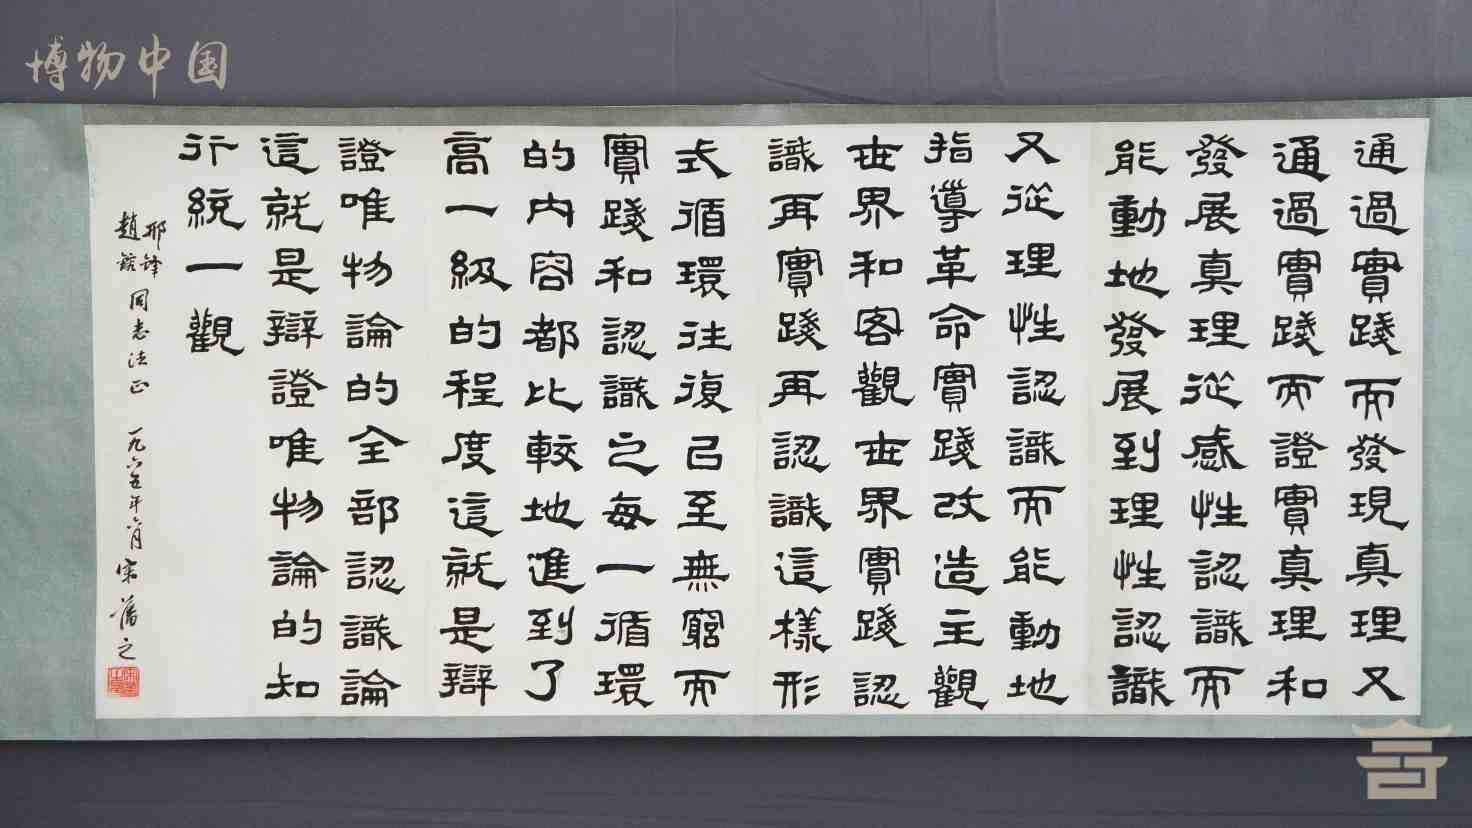 博物中国
通過實踐而發現真理又
通過實踐而證實真理和
發展真理從感性認識而
能動地發展到理性認識
又從理性認識而能動地
指導革命實踐改造主觀
世界和客觀世界實踐認
識再實踐再認識這樣形
式循環往復已至無窮而
實踐和認識之每一循環
的內容都比較地進到了
高一級的程度這就是辯
證唯物論的全部認識論
這就是辯證唯物論的知
行統一觀
邢鋒
趙
同志法正 一九六五年六月 宋之